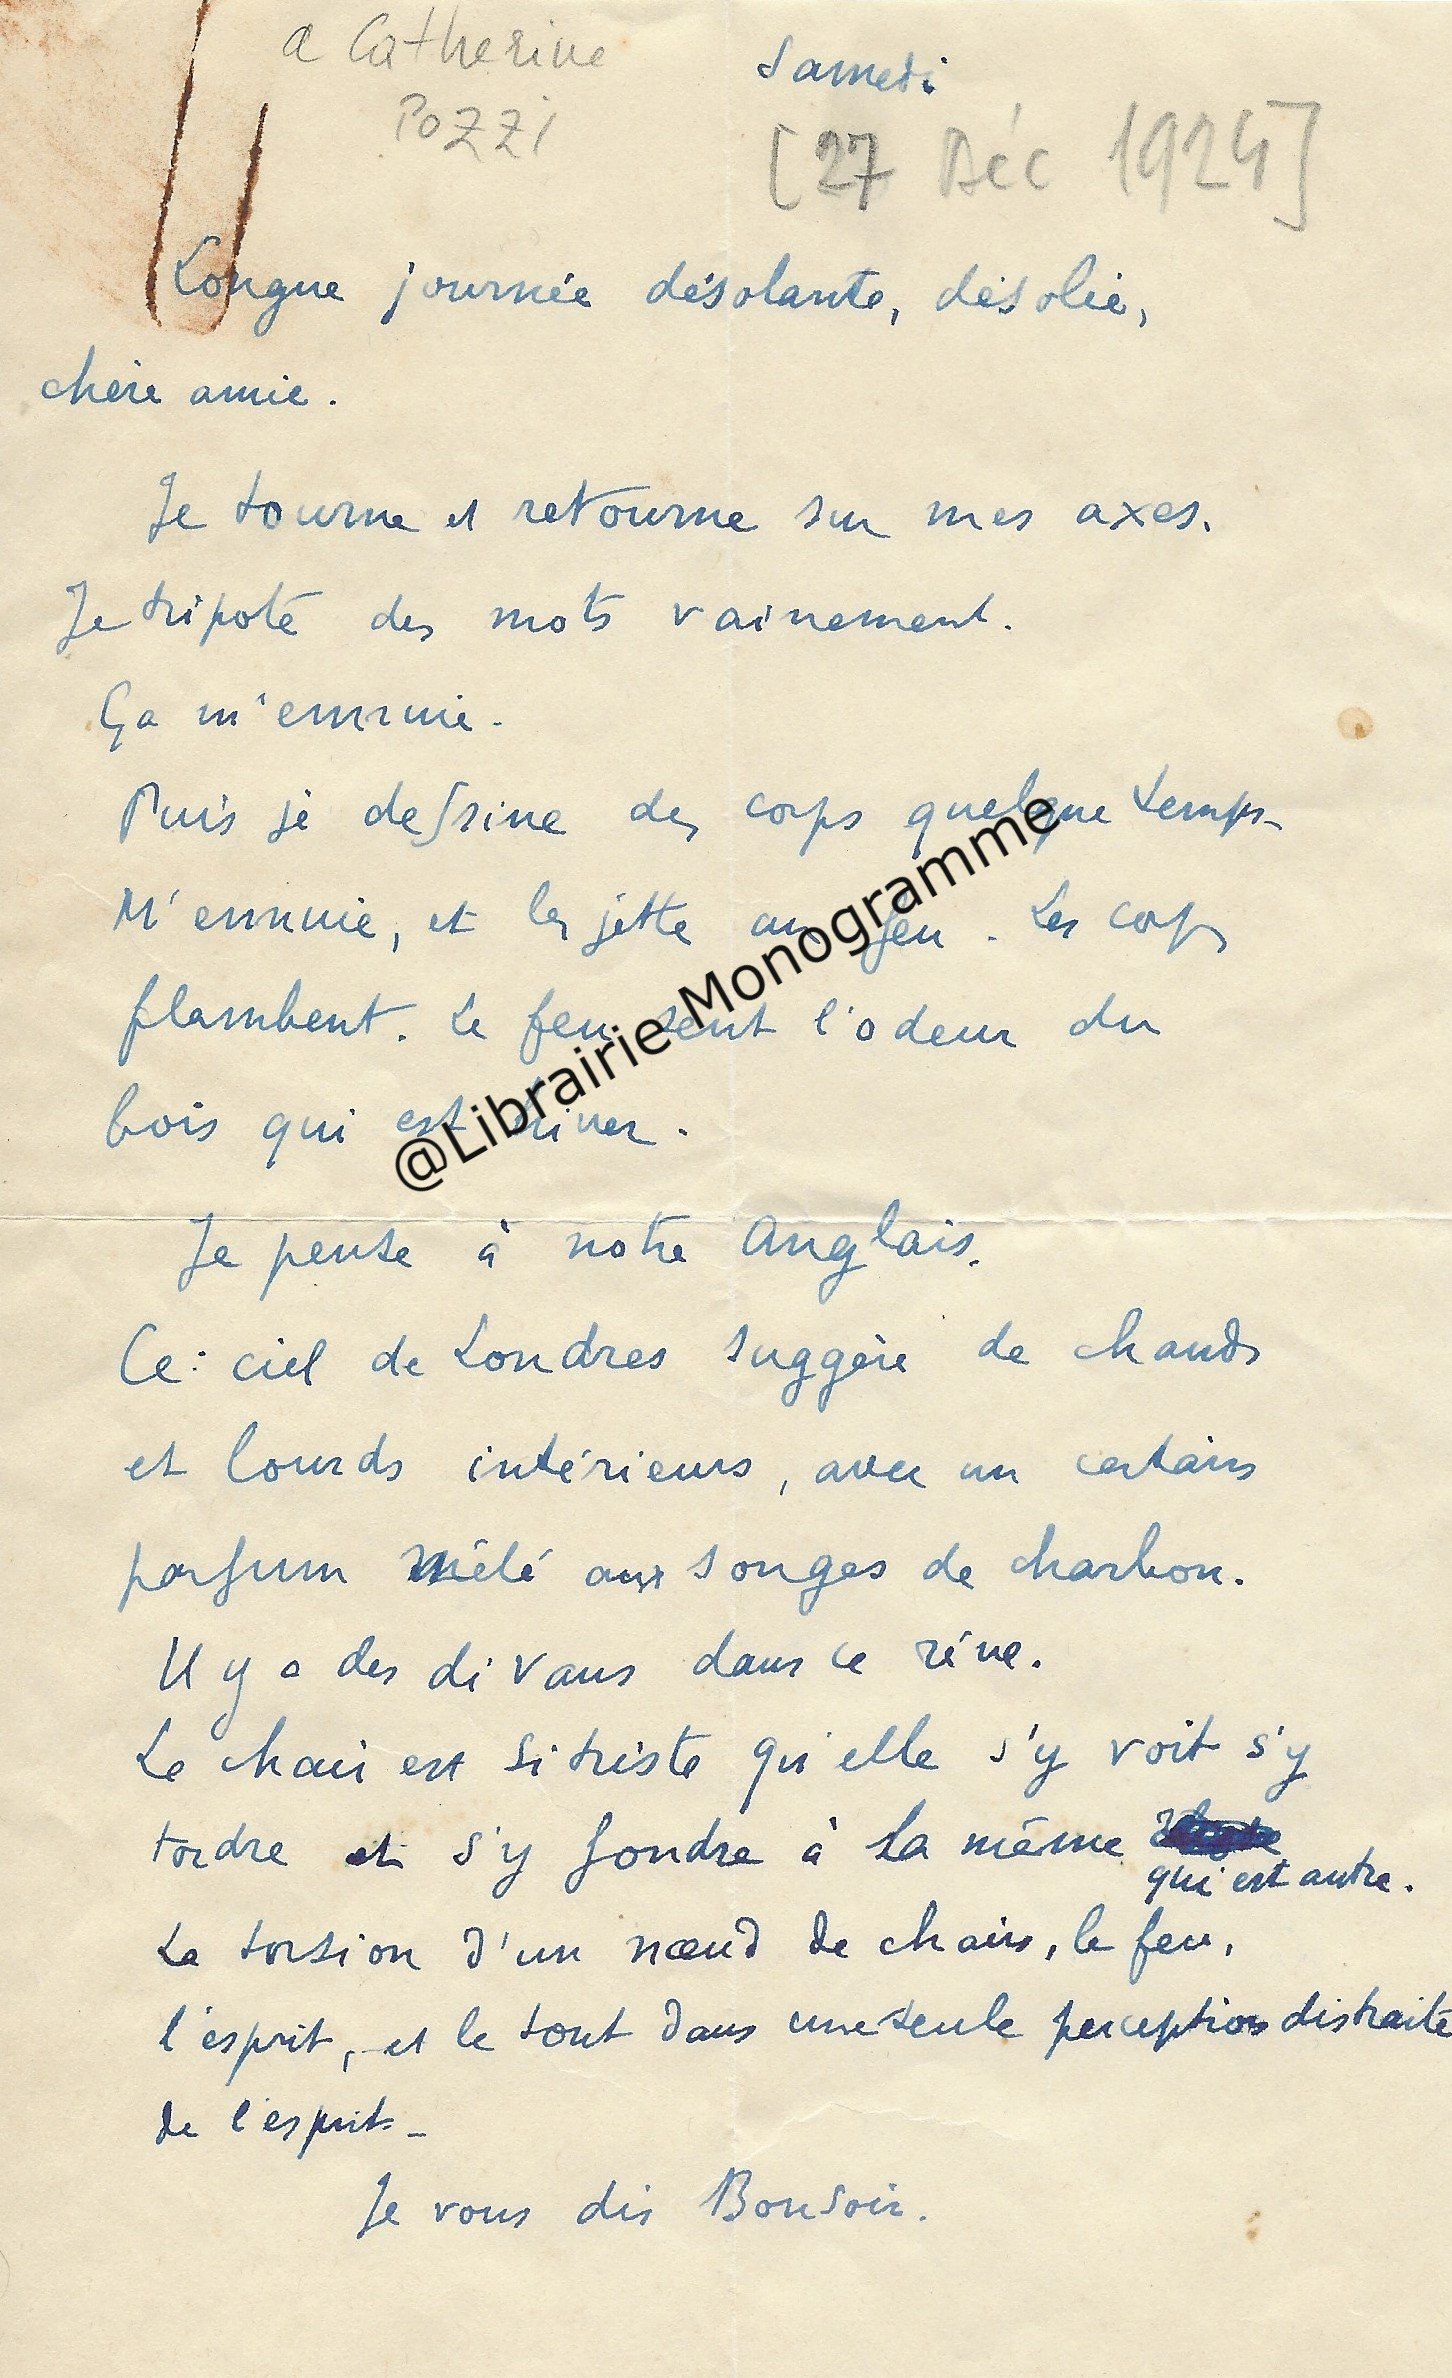 a Catherine
Pozzi
Samedi
[27 Déc 1924]
Longue journée désolante, désolée,
chère amie.
Je tourne et retourne sur mes axes.
Je tripote des mots vainement.
Ça m'ennuie.
Puis je dessine des corps quelque temps
M'ennuie, et les jette au feu. Les corps
flambent. Le feu sent l'odeur du
bois qui est hiver.
@Librairie Monogramme
Je pense à notre Anglais.
Ce ciel de Londres suggère de chauds
et lourds intérieurs, avec un certain
parfum mêlé aux songes de charbon.
Il y a des divans dans ce rêve.
La chair est si triste qu'elle s'y voit s'y
tordre et s'y fondre à la même
qui est autre.
La torsion d'un nœud de chairs, le feu,
l'esprit, et le tout dans une seule perception distraite
de l'esprit –
Je vous dis Bonsoir.